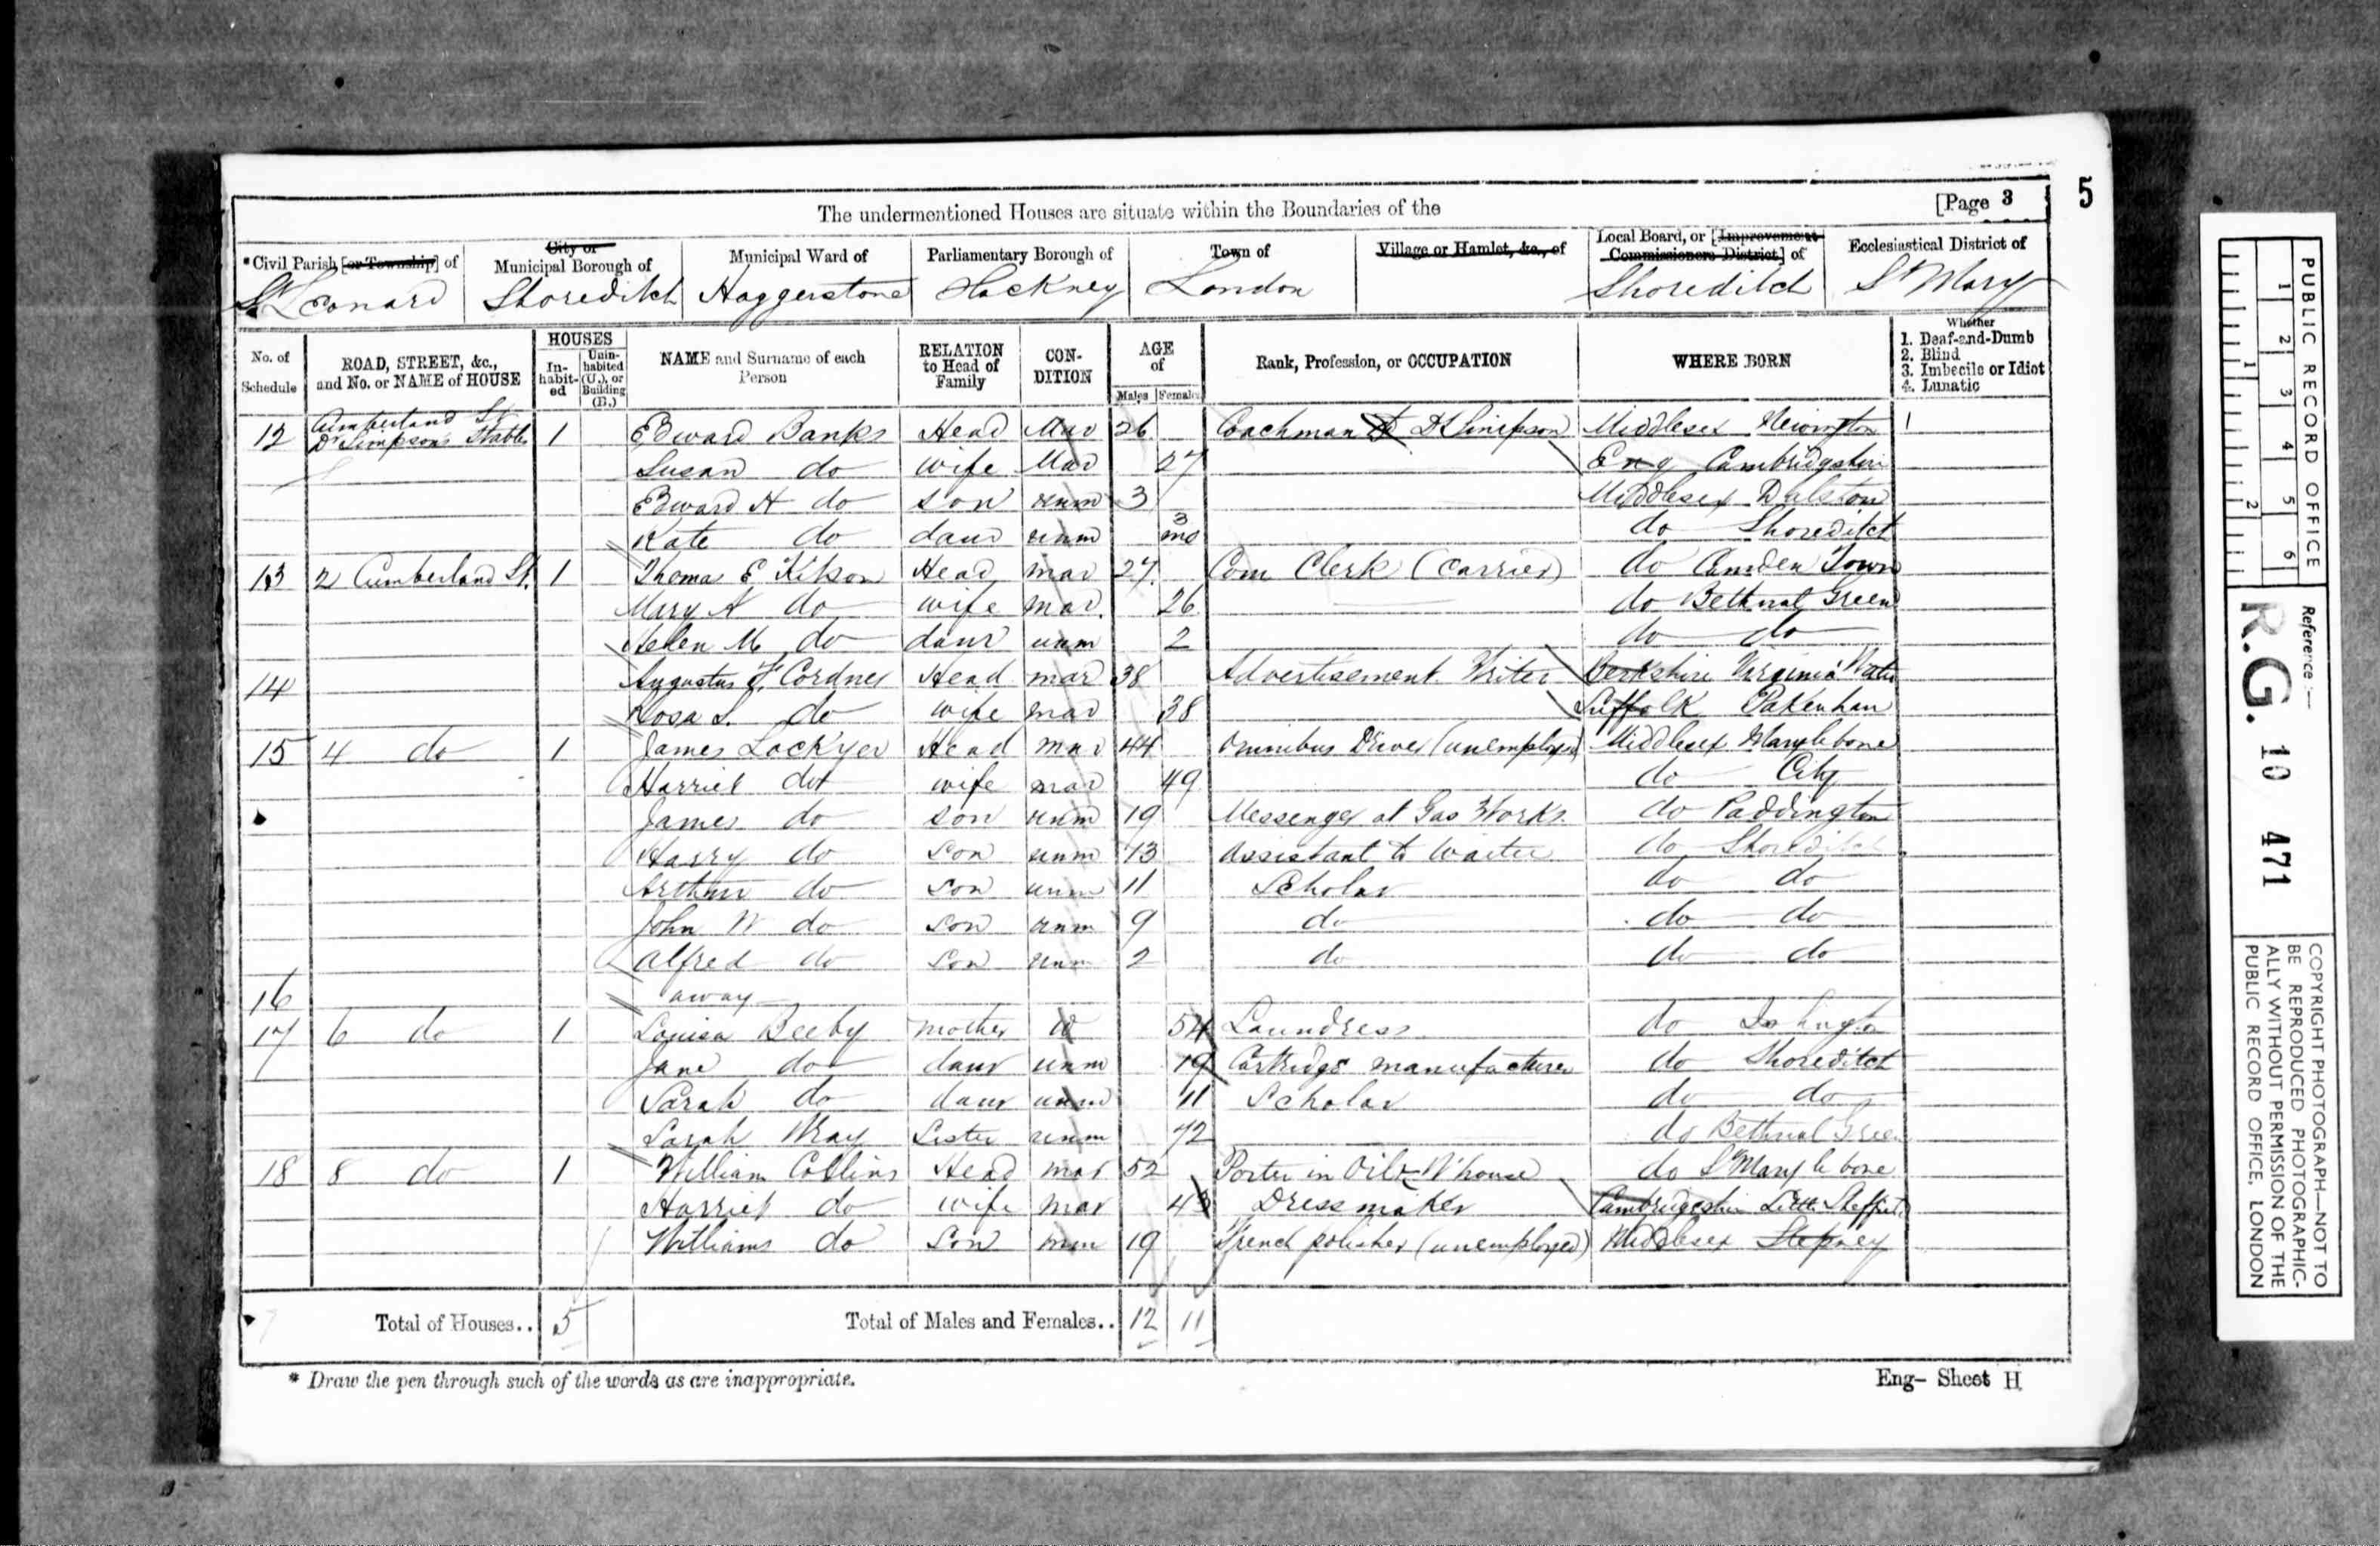 The undermentioned Houses are situate within the Boundaries of the [Page 3 5
*Civil Parish [or Township] of City or Municipal Borough of Municipal Ward of Parliamentary Borough of Town of Village or Hamlet, &c., of Local Board, or [Improvement Commissioners District] of Ecclesiastical District of
St Leonard Shoreditch Haggerstone Hackney London Shoreditch St Mary
No. of Schedule ROAD, STREET, &c., and No. or NAME of HOUSE HOUSES Inhabited Uninhabited (U.), or Building (B.) NAME and Surname of each Person RELATION to Head of Family CONDITION AGE of Males Females Rank, Profession, or OCCUPATION WHERE BORN Whether 1. Deaf-and-Dumb 2. Blind 3. Imbecile or Idiot 4. Lunatic
12 Cumberland St Dr Simpsons Stables 1 Edward Banks Head Mar 26 Coachman to Dr Simpson Middlesex Newington 1
Susan do wife Mar 27 Eng Cambridgshire
Edward H do son unm 3 Middlesex Dalston
Kate do daur unm 3 mo do Shoreditch
13 2 Cumberland St. 1 Thomas E Head mar 27 Com Clerk (Carrier) do Camden Town
Mary A do wife mar. 26 do Bethnal Green
Helen M do daur unm 2 do do
14 Augustus F. Cordner Head mar 38 Advertisement Writer Berkshire Virginia Water
Rosa S. do wife mar 38 Suffolk Pakenham
15 4 do 1 James Lockyer Head mar 44 Omnibus Driver (unemployed) Middlesex Marylebone
Harriet do wife mar 49 do City
James do son unm 19 Messenger at Gas Works do Paddington
Harry do son unm 13 Assistant to Waiter do Shoreditch
Arthur do son unm 11 Scholar do do
John W do son unm 9 do do do
Alfred do son unm 2 do do do
16 away
17 6 do 1 Louisa Beeby mother W 54 Laundress do Islington
Jane do daur unm 19 Cartridge manufacturer do Shoreditch
Sarah do daur unm 11 Scholar do do
Sarah Wray Sister unm 72 do Bethnal Green
18 8 do 1 William Collins Head mar 52 Porter in Oil W'house do St Marylebone
Harriet do wife mar 43 Dressmaker Cambridgeshire
Williams do Son unm 19 French polisher (unemployed) Middlesex Stepney
Total of Houses.. 5 Total of Males and Females.. 12 11
* Draw the pen through such of the words as are inappropriate. Eng- Sheet H
PUBLIC RECORD OFFICE
1 2 3 4 5 6
1 2
Reference:-
R.G. 10 471
COPYRIGHT PHOTOGRAPH—NOT TO BE REPRODUCED PHOTOGRAPHICALLY WITHOUT PERMISSION OF THE PUBLIC RECORD OFFICE, LONDON